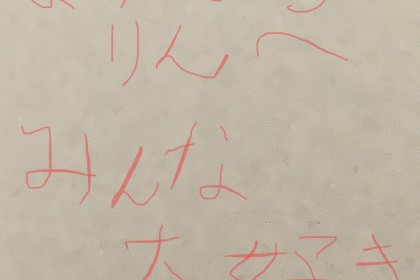 りんへ
みんな
大好き